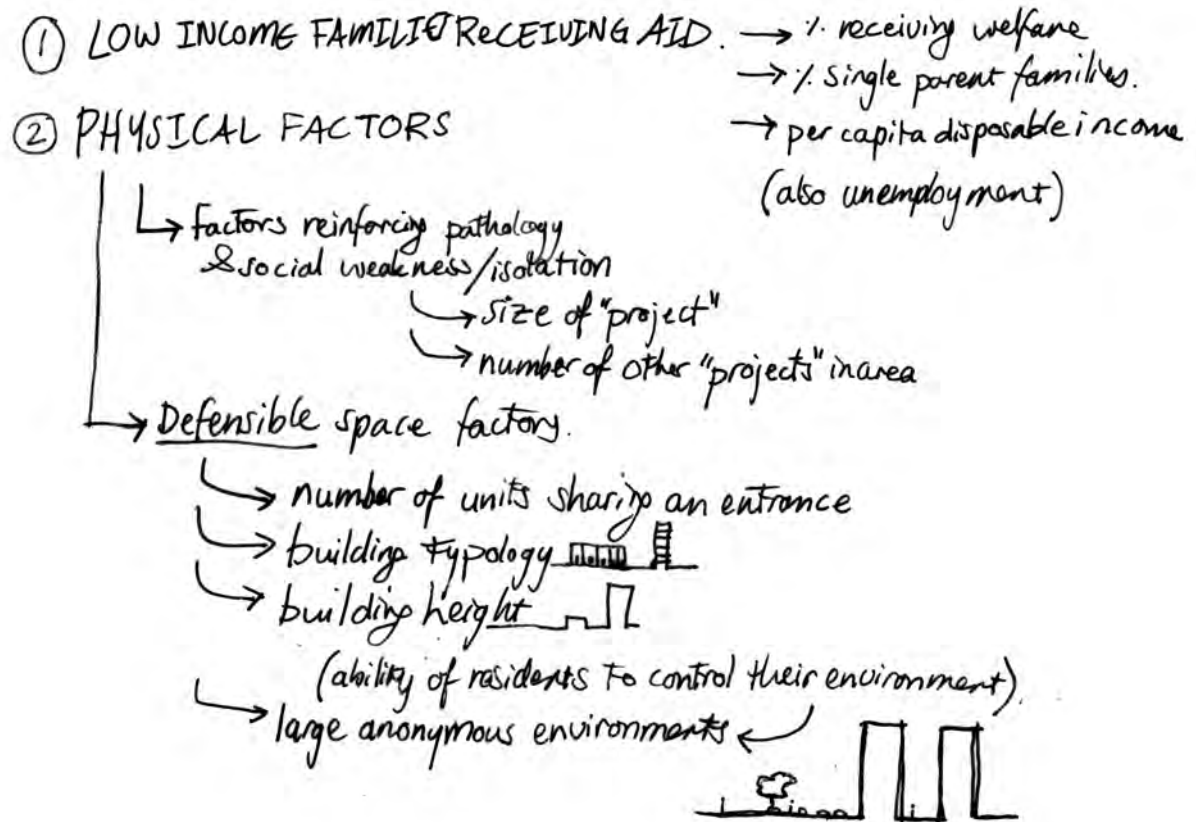 ① LOW INCOME FAMILIES RECEIVING AID. → % receiving welfare
→ % single parent families.
→ per capita disposable income
(also unemployment)
② PHYSICAL FACTORS
→ factors reinforcing pathology
& social weakness/isolation
→ size of "project"
→ number of other "projects" in area
→ Defensible space factors.
→ number of units sharing an entrance
→ building typology
→ building height
(ability of residents to control their environment).
→ large anonymous environments ←